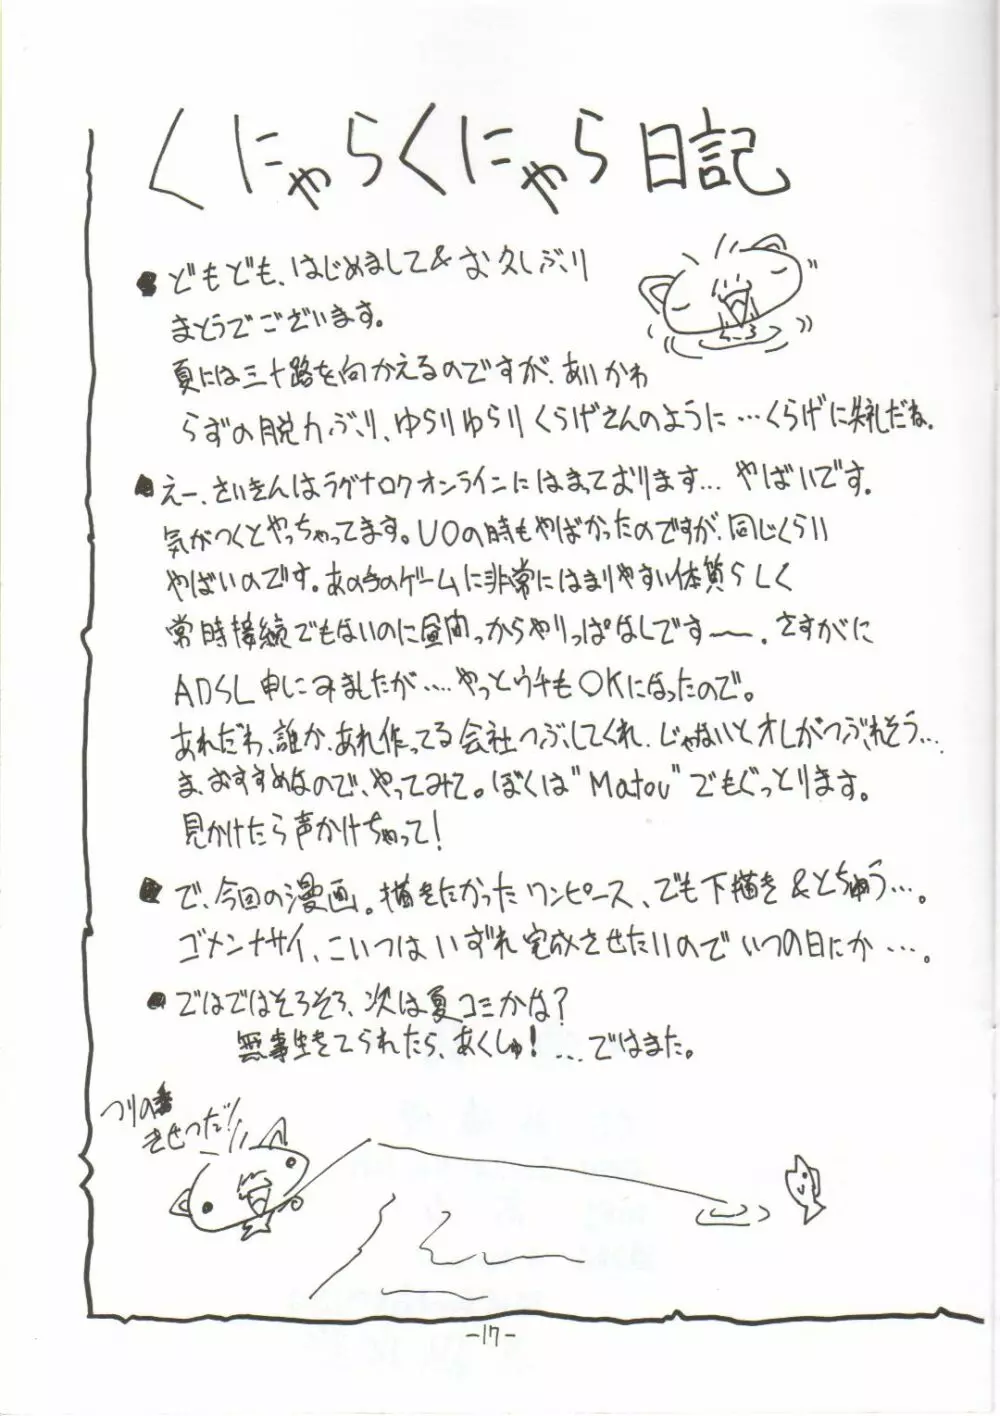 くにゃらくにゃら日記
どもども、はじめまして&お久しぶり
まとうでございます。
夏には三十路を向かえるのですが、あいかわ
らずの脱力ぶり、ゆらりゆらりくらげさんのように…くらげに失礼だね。
えー、さいきんはラグナロクオンラインにはまっております… やばいです。
気がつくとやっちゃってます。UOの時もやばかったのですが、同じくらい
やばいのです。あの手のゲームに非常にはまりやすい体質らしく
常時接続でもないのに昼間っからやりっぱなしです〜。さすがに
ADSL申しこみましたが…‥やっとウチもOKになったので。
あれだわ、誰か、あれ作ってる会社つぶしてくれ、じゃないとオレがつぶれそう…
ま、おすすめなので、やってみて。ぼくは"Matou"でもぐっとります。
見かけたら声かけちゃって!
で、今回の漫画。描きたかったワンピース、でも下描き&とちゅう…。
ゴメンナサイ、こいつはいずれ完成させたいのでいつの日にか…。
ではではそろそろ、次は夏コミかな?
無事生きてられたら、あくしゅ!…ではまた。
つりの季
きせつだ!!
-17-